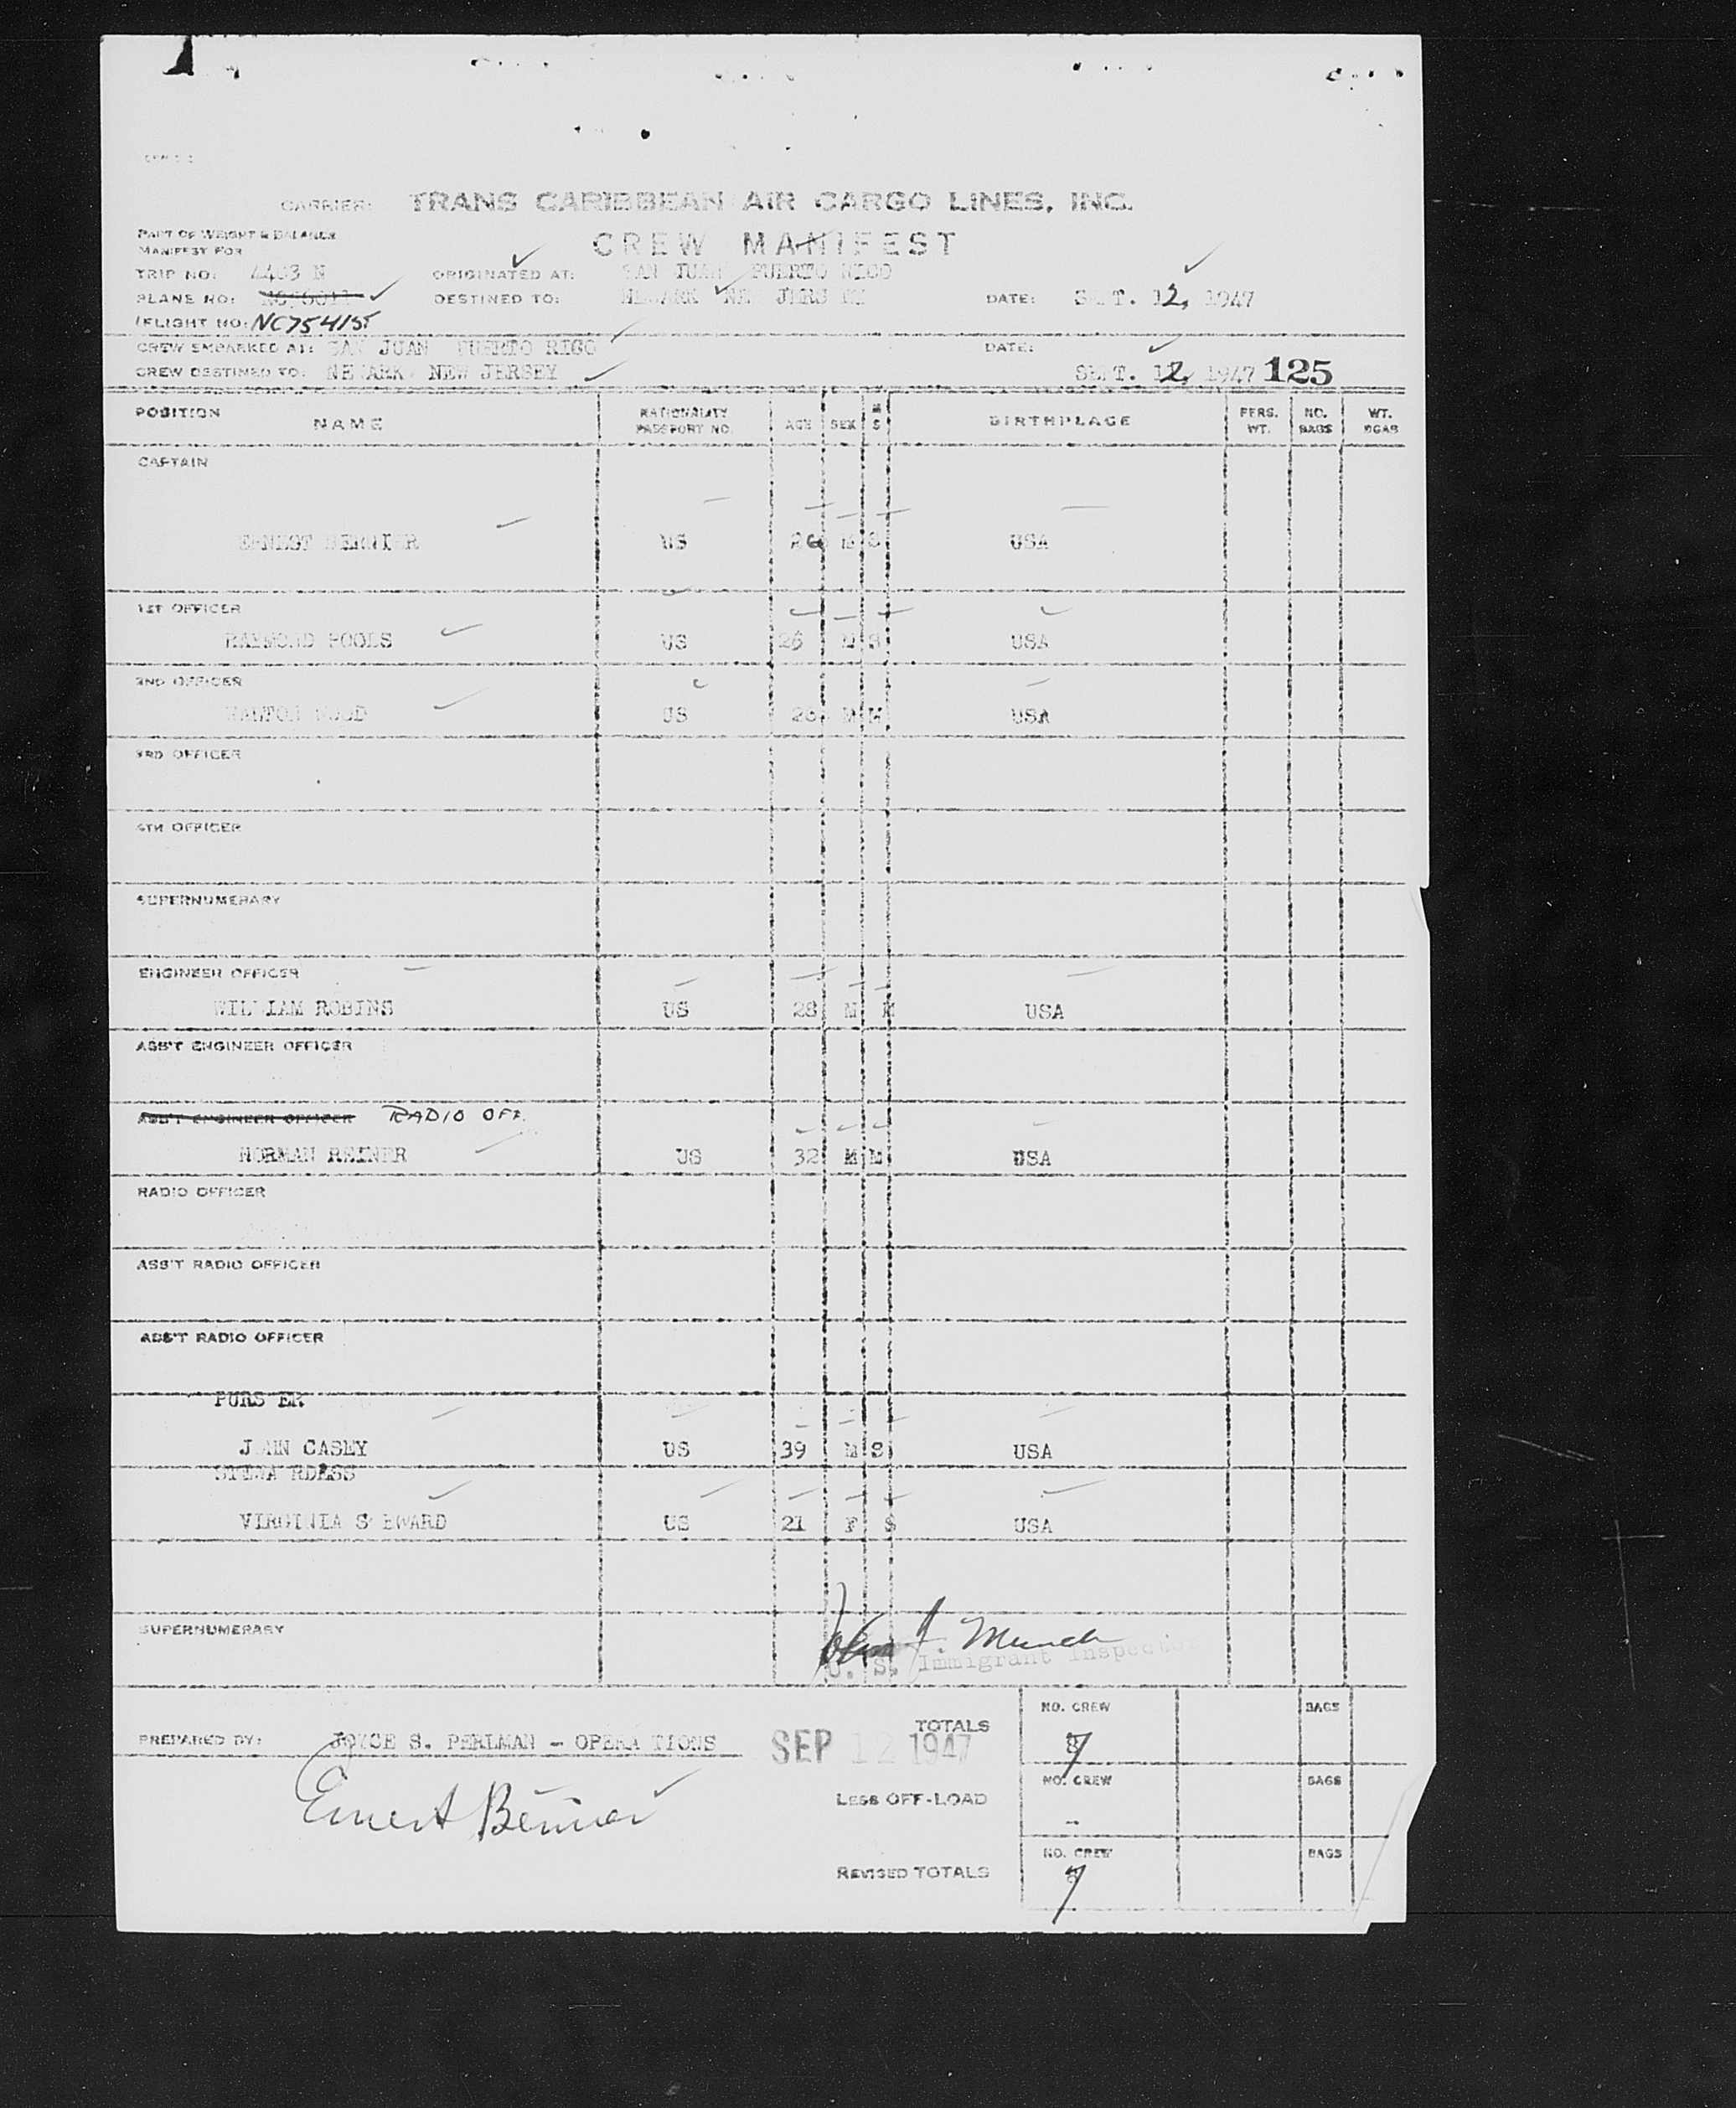 CARRIER: TRANS CARIBBEAN AIR CARGO LINES, INC.
PART OF WEIGHT & BALANCE
MANIFEST FOR
CREW MANIFEST
TRIP NO: N ORIGINATED AT: SAN JUAN PUERTO RICO
PLANE NO: DESTINED TO: NEWARK NEW JERSEY DATE: SEPT. 12, 1947
/FLIGHT NO: NC75415
CREW EMBARKED AT: SAN JUAN PUERTO RICO DATE:
CREW DESTINED TO: NEWARK NEW JERSEY SEPT. 12, 1947 125
POSITION NAME NATIONALITY PASSPORT NO. AGE SEX M S BIRTHPLACE PERS. WT. NO. BAGS WT. BGAS
CAPTAIN
ERNEST BERNIER US 26 M S USA
1ST OFFICER
RAYMOND POOLS US 26 M S USA
2ND OFFICER
WALTON WOOD US M M USA
3RD OFFICER
4TH OFFICER
SUPERNUMERARY
ENGINEER OFFICER
WILLIAM ROBINS US 28 M M USA
ASS'T ENGINEER OFFICER
ASS'T ENGINEER OFFICER RADIO OFF.
NORMAN REINER US 32 M M USA
RADIO OFFICER
ASS'T RADIO OFFICER
ASS'T RADIO OFFICER
PURS ER
CASEY US 39 M S USA
STEWA RDESS
VIRGINIA US 21 F S USA
SUPERNUMERARY
John J. Munch
U. S. Immigrant Inspector
PREPARED BY: JOYCE S. PERLMAN - OPERA TIONS SEP 12 1947 TOTALS NO. CREW 7 BAGS
Ernest Bernier
LESS OFF-LOAD NO. CREW - BAGS
REVISED TOTALS NO. CREW 7 BAGS